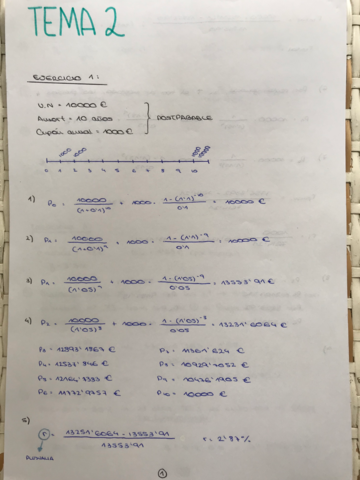 TEMA 2
EJERCICIO 1:
V.N = 10000 €
Amort = 10 años
Cupón anual = 1000 €
POSTPAGABLE
1000 1000 1000 10000
0 1 2 3 4 5 6 7 8 9 10
1) P₀ = 10000/(1+0'1)¹⁰ + 1000 · (1-(1'1)⁻¹⁰)/0'1 = 10000 €
2) P₁ = 10000/(1+0'1)⁹ + 1000 · (1-(1'1)⁻⁹)/0'1 = 10000 €
3) P₁ = 10000/(1'05)⁹ + 1000 · (1-(1'05)⁻⁹)/0'05 = 13553'91 €
4) P₂ = 10000/(1'05)⁸ + 1000 · (1-(1'05)⁻⁸)/0'05 = 13231'6064 €
P₃ = 12893'1867 € P₇ = 11361'624 €
P₄ = 12537'846 € P₈ = 10929'7052 €
P₅ = 12164'7383 € P₉ = 10476'1905 €
P₆ = 11772'9757 € P₁₀ = 10000 €
5)
r = (13231'6064 - 13553'91)/13553'91 r = 2'37%
PLUSVALIA
1